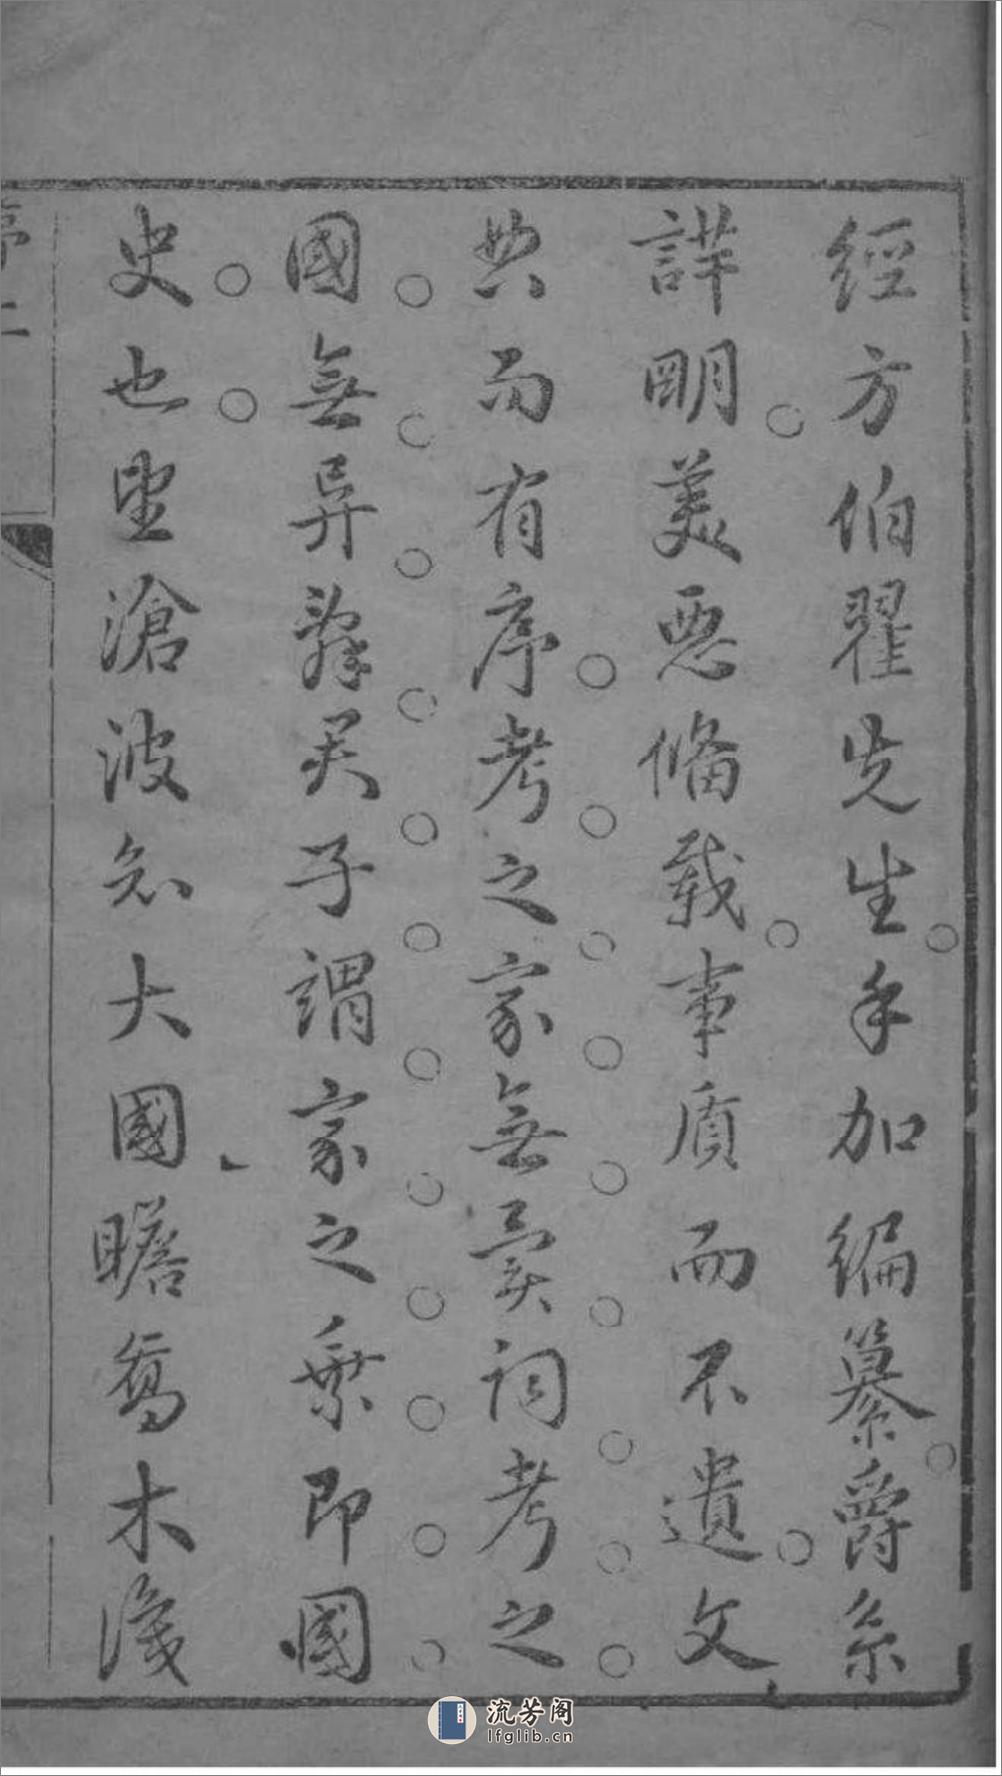 經方伯翟先生手加編纂爵系
詳明美惡脩載事質而不遺文
典而有序考之家無異詞考之
國無异辭君子謂家之乘即國
史也望滄波知大國瞻喬木識
序二
流芳阁
lfglib.cn